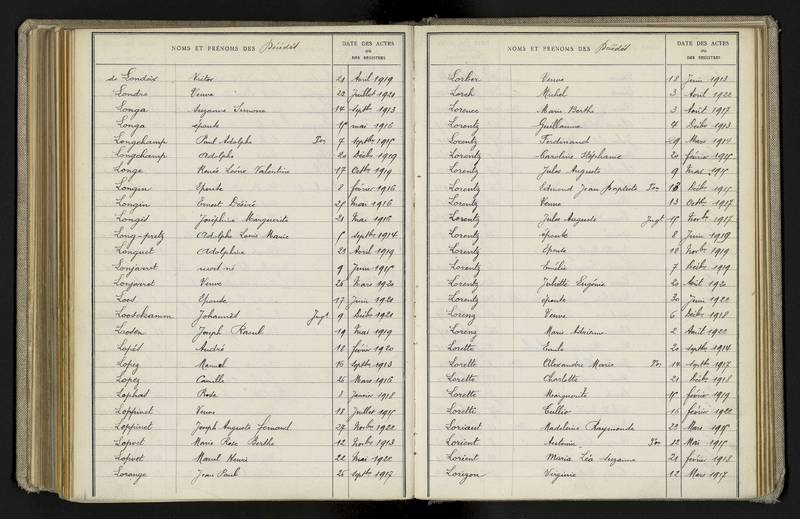 NOMS ET PRÉNOMS DES Décédés DATE DES ACTES OU DES REGISTRES
de Londaix Victor 21 Avril 1919
Londre Veuve 22 Juillet 1921
Longa Suzanne Simone 14 Septbre 1913
Longa épouse 15 mai 1916
Longchamp Paul Adolphe 7 Septbre 1915
Longchamp Adolphe 20 Décbre 1919
Longe Renée Léone Valentine 17 Octbre 1919
Longin Epouse 8 février 1916
Longin Ernest Désiré 25 Mai 1916
Longis Joséphine Marguerite 21 Mai 1916
Long-pretz Adolphe Louis Marie 5 Septbre 1914
Longuet Adolphine 29 Avril 1919
Lonjarret mort né 9 Juin 1915
Lonjarret Veuve 25 Mars 1920
Loos Epouse 17 Juin 1920
Looschamm Johannes Jugt 9 Décbre 1920
Looten Joseph Raoul 19 Mai 1919
Lopès André 18 février 1920
Lopez Manuel 16 Septbre 1913
Lopez Camille 25 Mars 1916
Lophas Rose 8 Janvier 1918
Loppinet Veuve 18 Juillet 1915
Loppinet Joseph Auguste fernand 27 Novbre 1922
Lopvet Marie Rose Berthe 12 Novbre 1913
Lopvet Marcel Henri 22 Mai 1922
Lorange Jean Paul 25 Septbre 1917
NOMS ET PRÉNOMS DES Décédés DATE DES ACTES OU DES REGISTRES
Lorber Veuve 18 Juin 1913
Lorch Michel 3 Avril 1922
Lorence Marie Berthe 3 Août 1917
Lorentz Guillaume 4 Décbre 1913
Lorentz Ferdinand 29 Mars 1914
Lorentz Caroline Stéphanie 20 février 1915
Lorentz Jules Auguste 9 Mai 1915
Lorentz Edmond Jean Baptiste 18 Décbre 1915
Lorentz Veuve 13 Octbre 1917
Lorentz Jules Auguste Jugt 15 Novbre 1917
Lorentz épouse 8 Juin 1919
Lorentz Epouse 18 Novbre 1919
Lorentz Emélie 7 Décbre 1919
Lorentz Juliette Eugénie 20 Août 1920
Lorentz épouse 30 Juin 1922
Lorenz Veuve 6 Décbre 1918
Lorenz Marie Adrienne 2 Avril 1922
Lorette Emile 20 Septbre 1914
Lorette Alexandre Marie 14 Septbre 1917
Lorette Charlotte 21 Décbre 1918
Lorette Marguerite 15 février 1919
Lorette Tullio 16 février 1922
Loriaut Madeleine Raymonde 22 Mars 1915
Lorient Antoine 12 Mai 1915
Lorient Maria Léa Suzanne 21 février 1918
Lorizon Virginie 12 Mars 1917